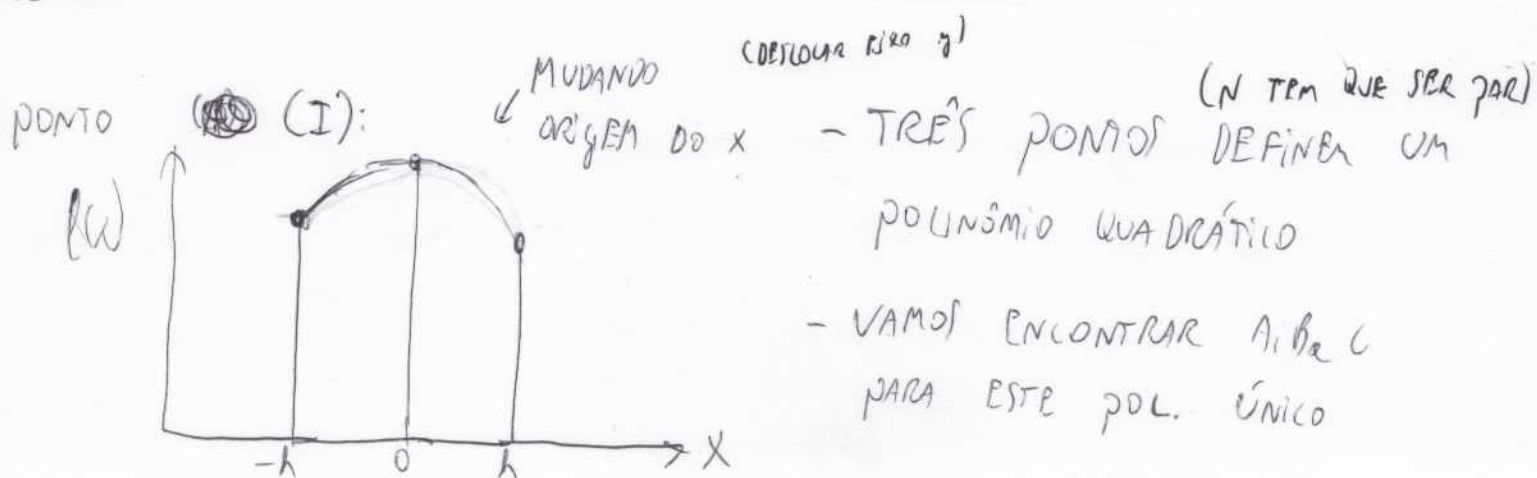 (DESLOCAR EIXO y)
MUDANDO
ORIGEM DO X
PONTO (I):
f(x)
-h 0 h X
(N TEM QUE SER PAR)
- TRÊS PONTOS DEFINEM UM
POLINÔMIO QUADRÁTICO
- VAMOS ENCONTRAR A, B e C
PARA ESTE POL. ÚNICO